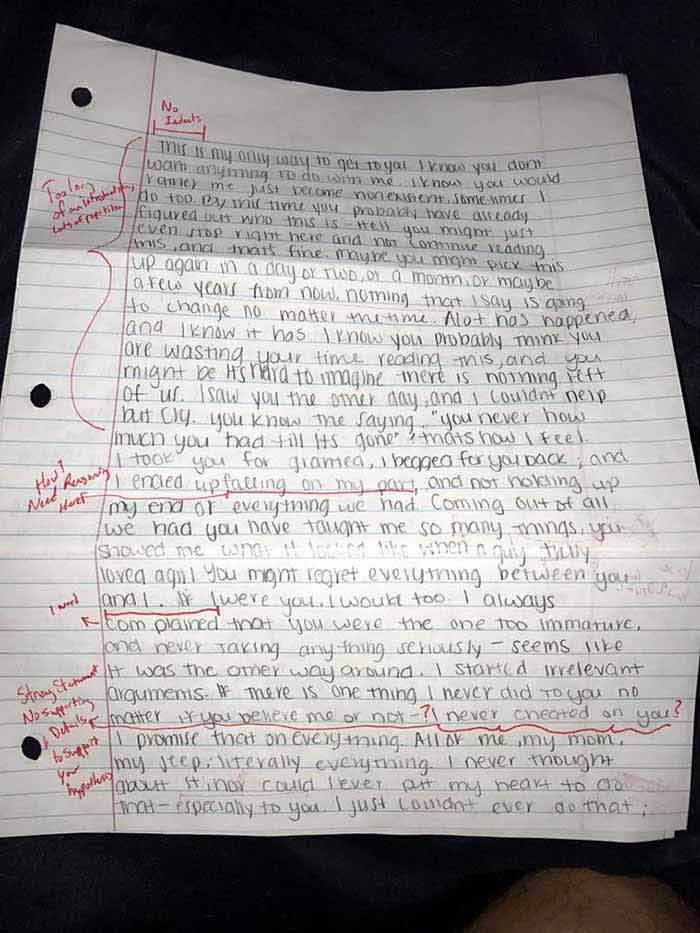 No
Indents
This is my only way to get to you I know you dont
Too long
of an introduction,
Lots of repetition
want anything to do with me. I know you would
rather me just become nonexistent, sometimes I
do too. By this time you probably have already
figured out who this is - Hell you might just
even stop right here and not continue reading
this, and thats fine. maybe you might pick this
up again in a day or two, or a month, or maybe
a few years from now. nothing that I say is going
to change no matter the time. Alot has happened,
and I know it has. I know you probably think you
are wasting your time reading this, and you
might be. Its hard to imagine there is nothing left
of us. I saw you the other day, and I couldnt help
but cry. you know the saying, "you never how
much you had till its gone", thats how I feel.
I took you for granted, I begged for you back; and
How?
Need Reasoning
Here!
I ended up falling on my part, and not holding up
my end of everything we had. Coming out of all
we had you have taught me so many things, you
showed me what it looked like when a guy truly
loved a girl. You might regret everything between you
and I. If I were you, I would too. I always
complained that you were the one too immature,
and never taking anything seriously - seems like
it was the other way around. I started irrelevant
Strong Statement
No supporting
Details
to support
your
hypothesis
arguments. If there is one thing I never did to you no
matter if you believe me or not -? I never cheated on you?
I promise that on everything. All of me, my mom,
my jeep; literally everything. I never thought
about it, nor could I ever put my heart to do
that - especially to you. I just couldnt ever do that;